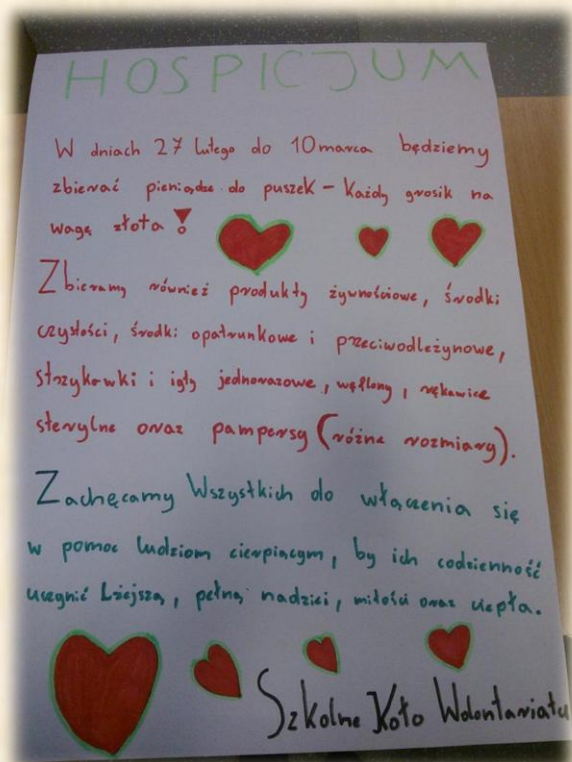 HOSPICJUM
W dniach 27 lutego do 10 marca będziemy
zbierać pieniądze do puszek - Każdy grosik na
wagę złota !
Zbieramy również produkty żywnościowe, środki
czystości, środki opatrunkowe i przeciwodleżynowe,
strzykawki i igły jednorazowe, weflony, rękawice
sterylne oraz pampersy (różne rozmiary).
Zachęcamy Wszystkich do włączenia się
w pomoc ludziom cierpiącym, by ich codzienność
uczynić Lżejszą, pełną nadziei, miłości oraz ciepła.
Szkolne Koło Wolontariatu